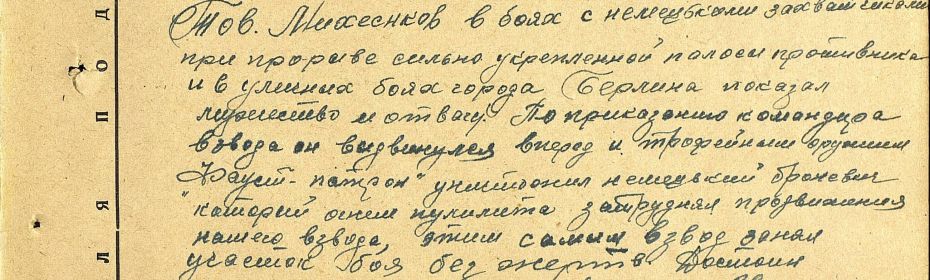 Тов. Михеенков в боях с немецкими захватчиками
при прорыве сильно укрепленной паласы противника
и в уличных боях города Берлина показал
мужество и отвагу. По приказанию командира
взвода он выдвинулся вперед и трофейным оружием
"Фауст-патрон" уничтожил немецкий броневик
каторый огнем пулимета затруднял продвижения
нашего взвода, этим самым взвод занял
участок боя без жертв. Достоин
Л Я П О Д